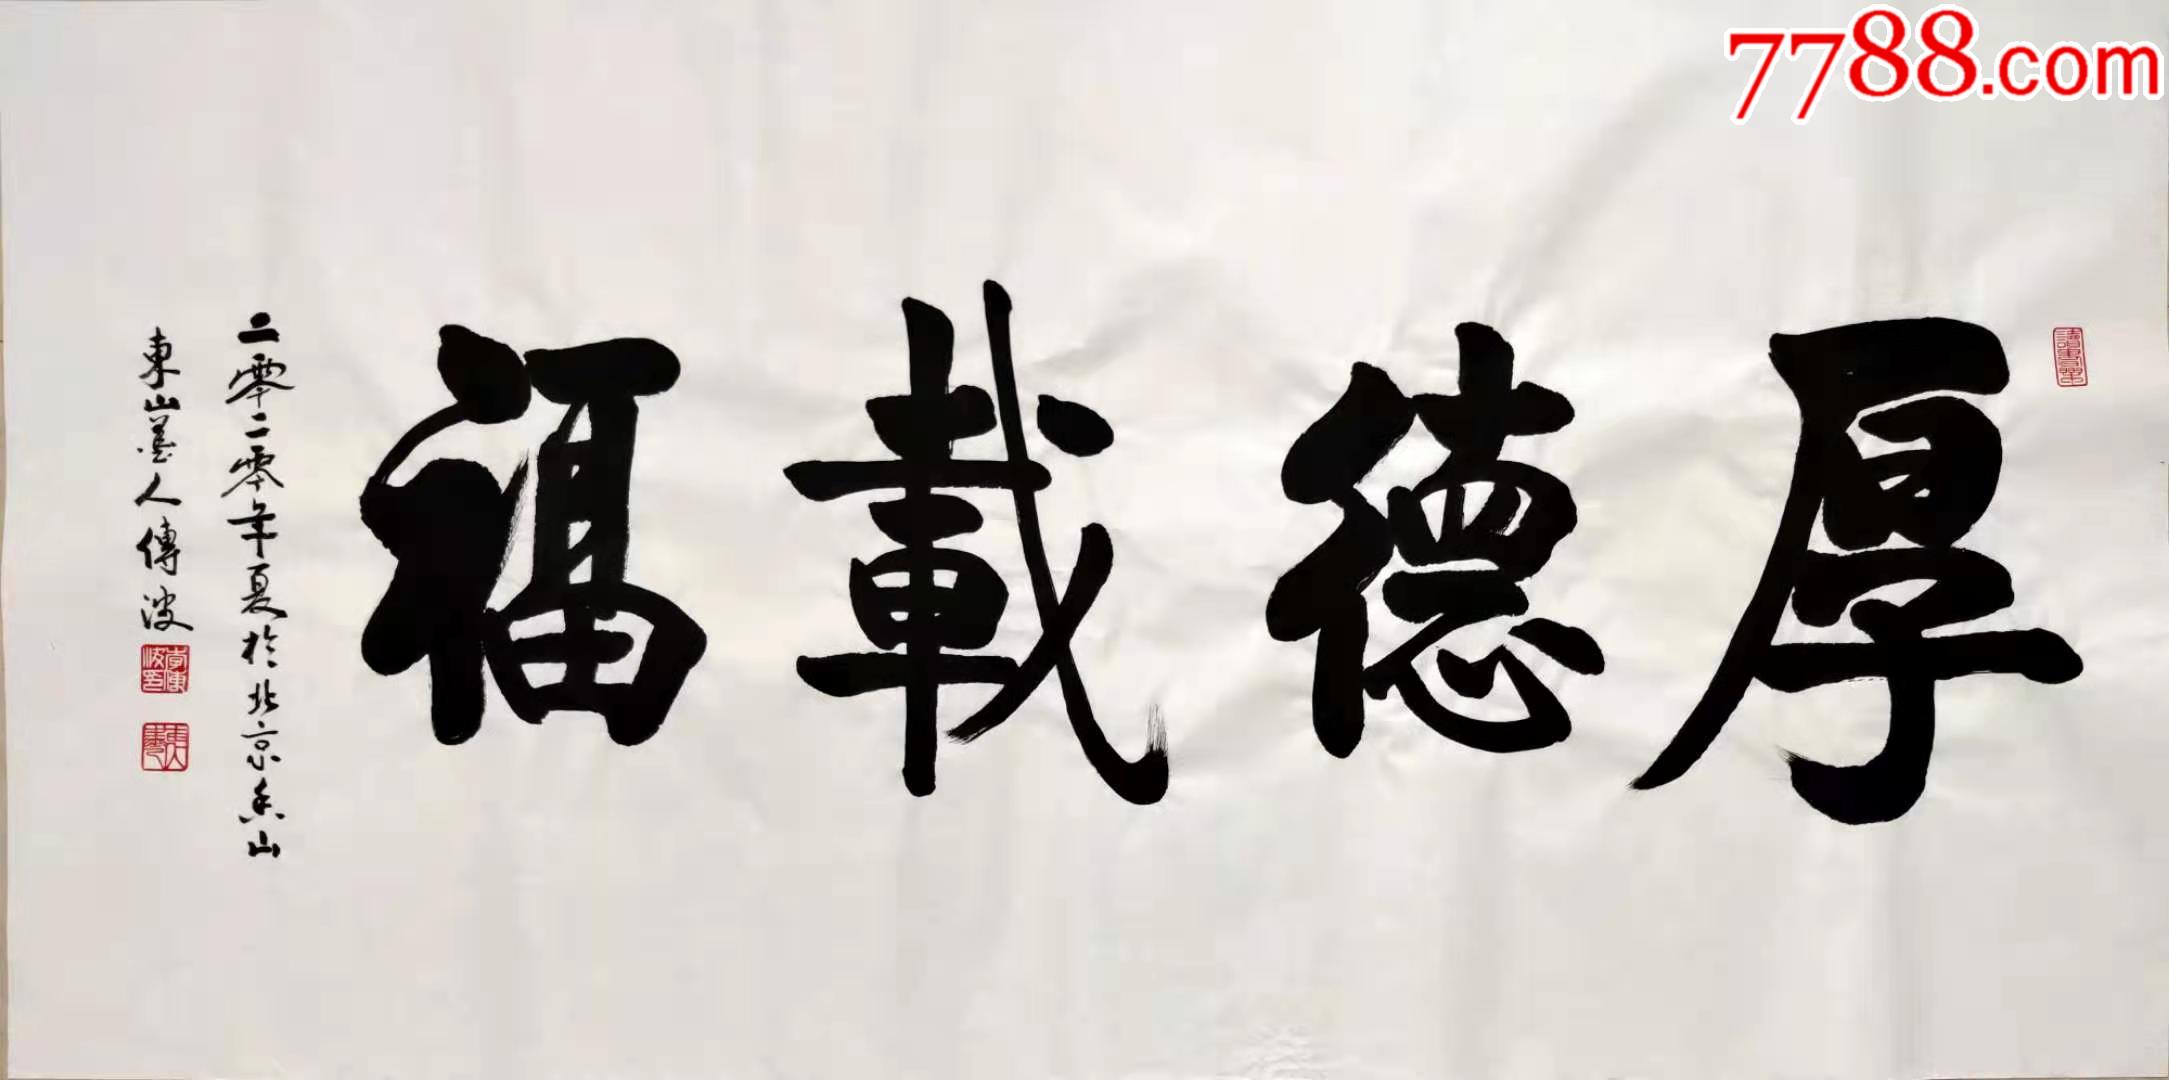 7788.com
厚德載福
二零二零年夏於北京香山
東山墨人傳波